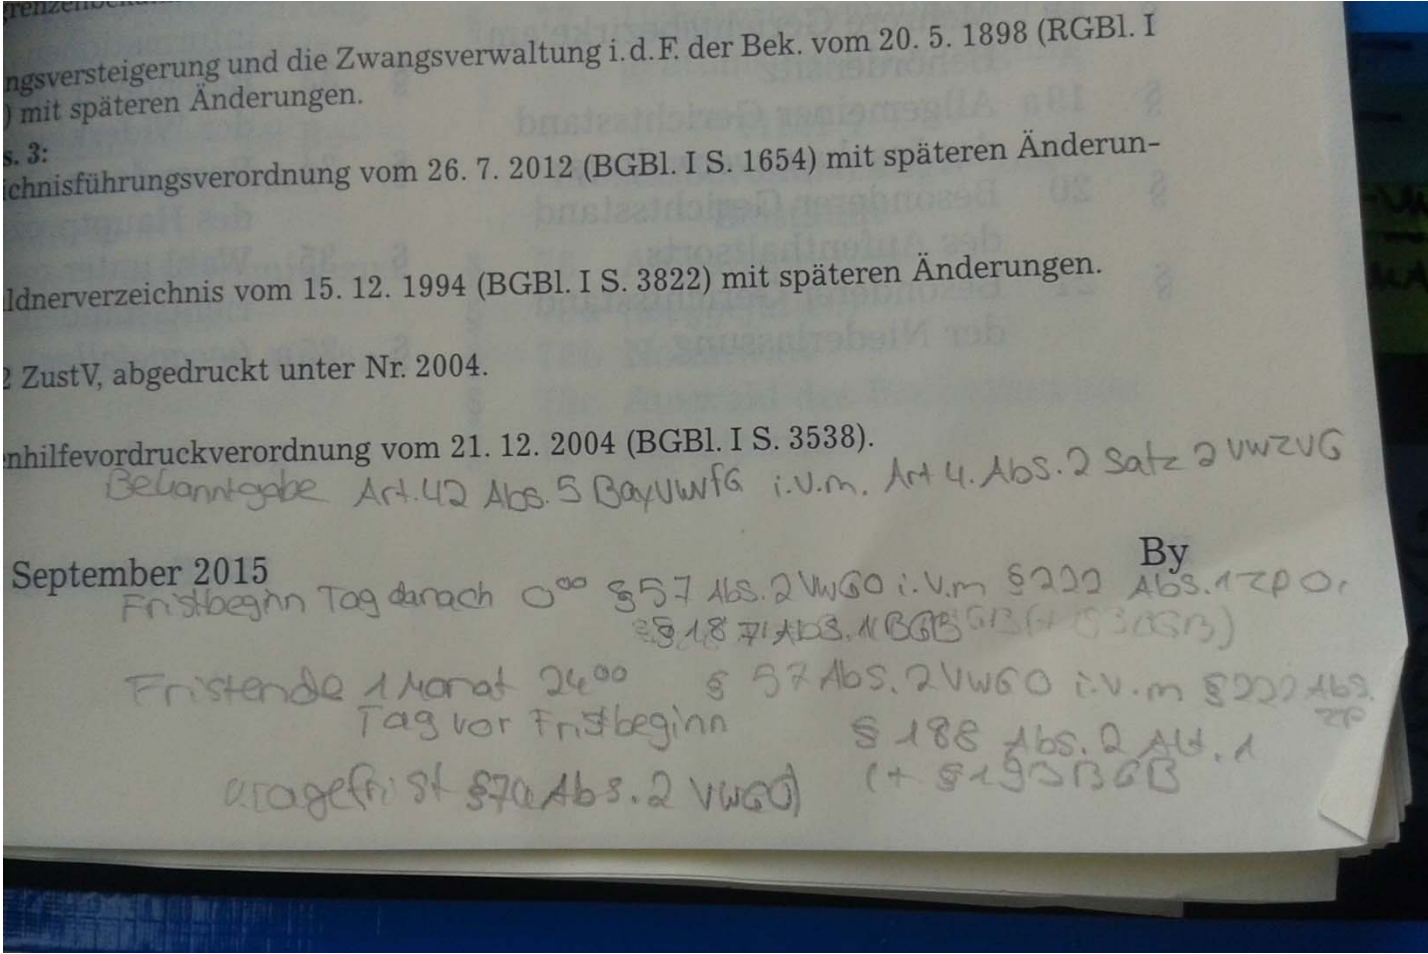 ngsversteigerung und die Zwangsverwaltung i. d. F. der Bek. vom 20. 5. 1898 (RGBl. I
) mit späteren Änderungen.
s. 3:
chnisführungsverordnung vom 26. 7. 2012 (BGBl. I S. 1654) mit späteren Änderun-
ldnerverzeichnis vom 15. 12. 1994 (BGBl. I S. 3822) mit späteren Änderungen.
2 ZustV, abgedruckt unter Nr. 2004.
nhilfevordruckverordnung vom 21. 12. 2004 (BGBl. I S. 3538).
Bekanntgabe Art. 42 Abs. 5 BayVwVfG i.V.m. Art 4. Abs. 2 Satz 2 VwZVG
September 2015 By
Fristbeginn Tag danach 0⁰⁰ §57 Abs. 2 VwGO i.V.m §222 Abs. 1 ZPO,
§187 Abs. 1 BGB
Fristende 1 Monat 24⁰⁰ § 57 Abs. 2 VwGO i.V.m §222 Abs.
Tag vor Fristbeginn § 188 Abs. 2 Alt. 1 ZP
Klagefrist §74 Abs. 2 VwGO) (+ §193 BGB